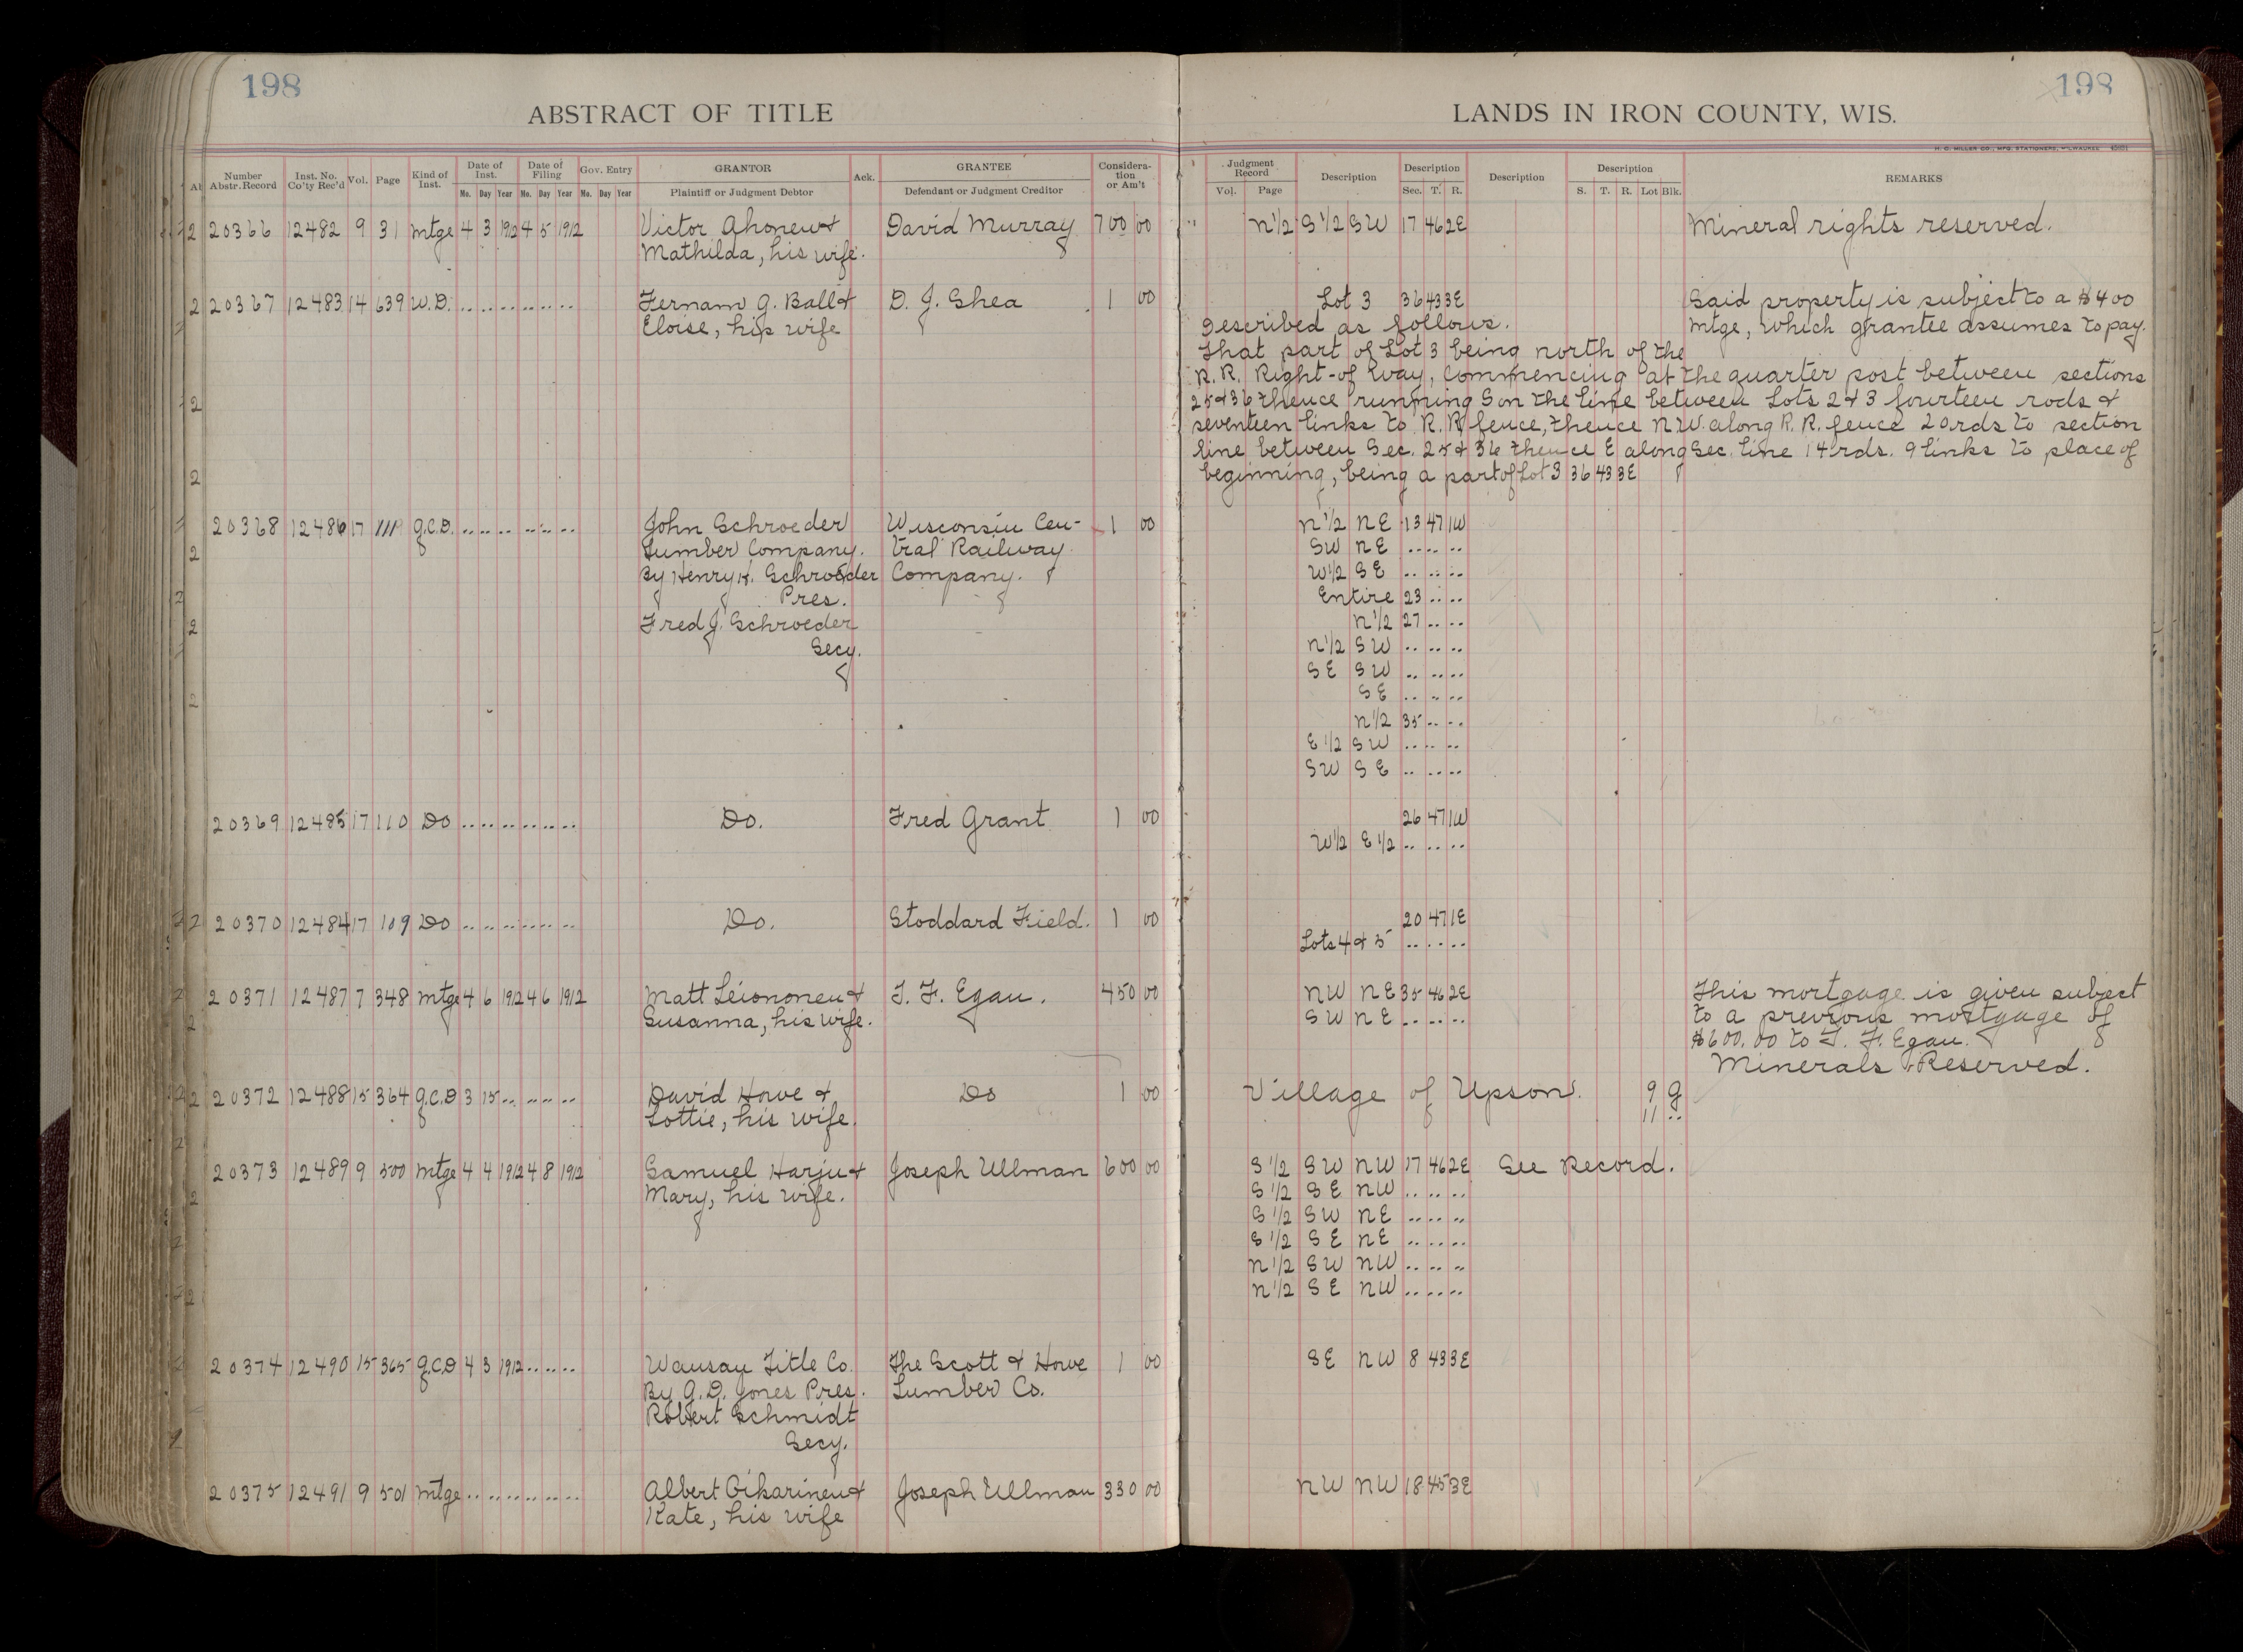 198
198
ABSTRACT OF TITLE
LANDS IN IRON COUNTY, WIS.
H. C. MILLER CO., MFG. STATIONERS, MILWAUKEE
Number Abstr. Record Inst. No. Co'ty Rec'd Vol. Page Kind of Inst. Date of Inst. Mo. Day Year Date of Filing Mo. Day Year Gov. Entry Mo. Day Year GRANTOR Plaintiff or Judgment Debtor Ack. GRANTEE Defendant or Judgment Creditor Considera-tion or Am't Judgment Record Vol. Page Description Description Sec. T. R. Description Description S. T. R. Lot Blk. REMARKS
20366 12482 9 31 Mtge 4 3 1912 4 5 1912 Victor Ahonen & David Murray 700 00 N 1/2 S 1/2 SW 17 46 2E Mineral rights reserved.
Mathilda, his wife.
20367 12483 14 639 W.D. .. .. .. .. .. .. Fernam G. Ball & D. J. Shea 1 00 Lot 3 36 43 3E Said property is subject to a $400
Eloise, his wife Described as follows. Mtge, which grantee assumes to pay.
That part of Lot 3 being north of the
R. R. Right-of Way, commencing at the quarter post between sections
25 & 36 thence running S on the line between Lots 2 & 3 fourteen rods &
seventeen links to R. R. fence, thence NW. along R. R. fence 20 rds to section
line between Sec. 25 & 36 thence E along Sec. line 14 rds. 9 links to place of
beginning, being a part of Lot 3 36 43 3E
20368 12486 17 111 Q.C.D. .. .. .. .. .. .. John Schroeder Wisconsin Cen- 1 00 N 1/2 NE 13 47 1W
Lumber Company. tral Railway SW NE .. .. ..
By Henry H. Schroeder Company. W 1/2 SE .. .. ..
Pres. Entire 23 .. ..
Fred J. Schroeder N 1/2 27 .. ..
Secy. N 1/2 SW .. .. ..
SE SW .. .. ..
SE .. .. ..
N 1/2 35 .. ..
E 1/2 SW .. .. ..
SW SE .. .. ..
20369 12485 17 110 Do .. .. .. .. .. .. Do. Fred Grant 1 00 26 47 1W
W 1/2 E 1/2 .. .. ..
20370 12484 17 109 Do .. .. .. .. .. .. Do. Stoddard Field. 1 00 20 47 1E
Lots 4 & 5 .. .. ..
20371 12487 7 348 Mtge 4 6 1912 4 6 1912 Matt Leiononen & T. F. Egan. 450 00 NW NE 35 46 2E This mortgage is given subject
Susanna, his wife. SW NE .. .. .. to a previous mortgage of
$600.00 to T. F. Egan.
Minerals Reserved.
20372 12488 15 364 Q.C.D 3 15 .. .. .. .. David Howe & Do 1 00 Village of Upson. 9 G
Lottie, his wife. 11 ..
20373 12489 9 500 Mtge 4 4 1912 4 8 1912 Samuel Harju & Joseph Ullman 600 00 S 1/2 SW NW 17 46 2E See Record.
Mary, his wife. S 1/2 SE NW .. .. ..
S 1/2 SW NE .. .. ..
S 1/2 SE NE .. .. ..
N 1/2 SW NW .. .. ..
N 1/2 SE NW .. .. ..
20374 12490 15 365 Q.C.D 4 3 1912 .. .. .. Wausau Title Co. The Scott & Howe 1 00 SE NW 8 43 3E
By G. D. Jones Pres. Lumber Co.
Robert Schmidt
Secy.
20375 12491 9 501 Mtge .. .. .. .. .. .. Albert Oikarinen & Joseph Ullman 330 00 NW NW 18 45 3E
Kate, his wife